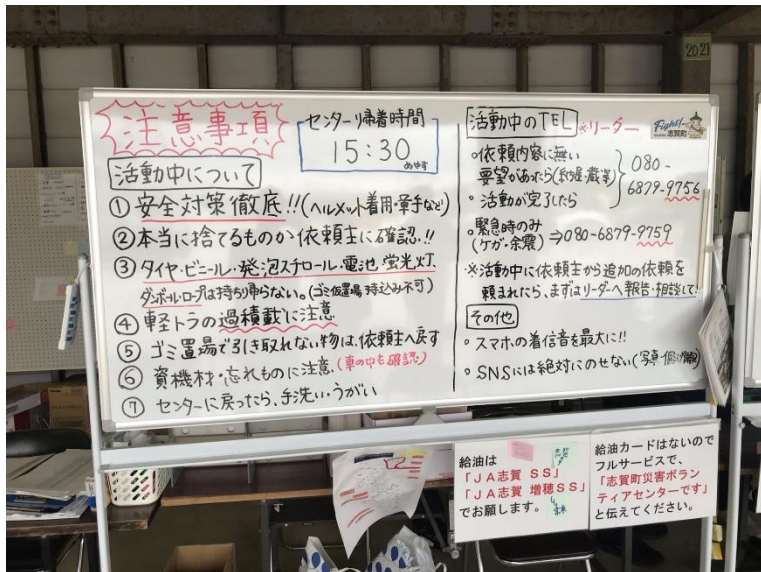 注意事項
センター帰着時間
15:30
めやす
活動中について
① 安全対策徹底!!(ヘルメット着用・軍手など)
② 本当に捨てるものか依頼主に確認!!
③ タイヤ・ビニール・発泡スチロール・電池・蛍光灯
ダンボール・ロープは持ち帰らない。(ゴミ仮置場持込み不可)
④ 軽トラの過積載に注意
⑤ ゴミ置場で引き取れない物は、依頼主へ戻す
⑥ 資機材・忘れものに注意。(車の中も確認)
⑦ センターに戻ったら、手洗い・うがい
活動中のTEL
※リーダー
Fight!
志賀町
。依頼内容に無い
要望があったら(納屋・蔵等)
。活動が完了したら
080-
6879-9756
。緊急時のみ
(ケガ・余震)
⇒080-6879-9759
※活動中に依頼主から追加の依頼を
頼まれたら、まずはリーダーへ報告・相談して!
その他
。スマホの着信音を最大に!!
。SNSには絶対にのせない(写真・個人情報)
202
給油は
「JA志賀 SS」
「JA志賀 増穂SS」
でお願します。
給油カードはないので
フルサービスで、
「志賀町災害ボラン
ティアセンターです」
と伝えてください。